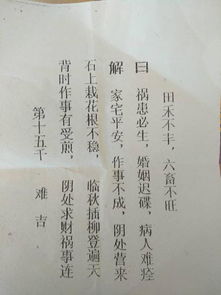 第十五千 难吉
背时作事有受煎, 阴处求财祸事连
石上栽花根不稳, 临秋插柳登遍天
解 家宅平安,作事不成,阴处营来
曰 祸患必生,婚姻迟碟,病人难痊
田禾不丰,六畜不旺